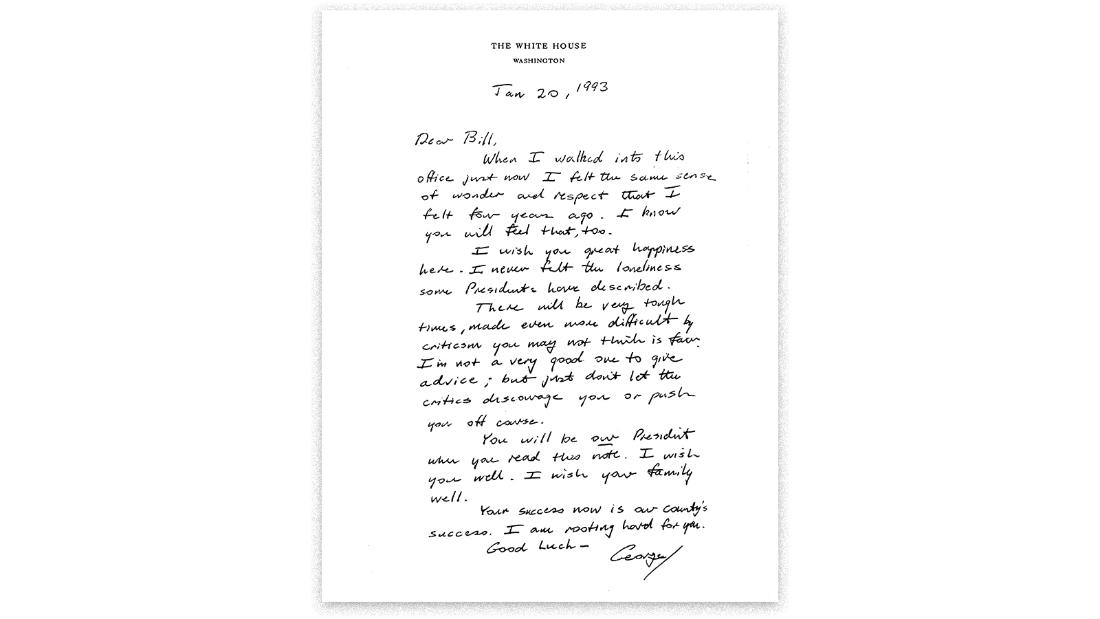 THE WHITE HOUSE
WASHINGTON
Jan 20, 1993
Dear Bill,
When I walked into this
office just now I felt the same sense
of wonder and respect that I
felt four years ago. I know
you will feel that, too.
I wish you great happiness
here. I never felt the loneliness
some Presidents have described.
There will be very tough
times, made even more difficult by
criticism you may not think is fair.
I'm not a very good one to give
advice; but just don't let the
critics discourage you or push
you off course.
You will be our President
when you read this note. I wish
you well. I wish your family
well.
Your success now is our country's
success. I am rooting hard for you.
Good Luck—
George